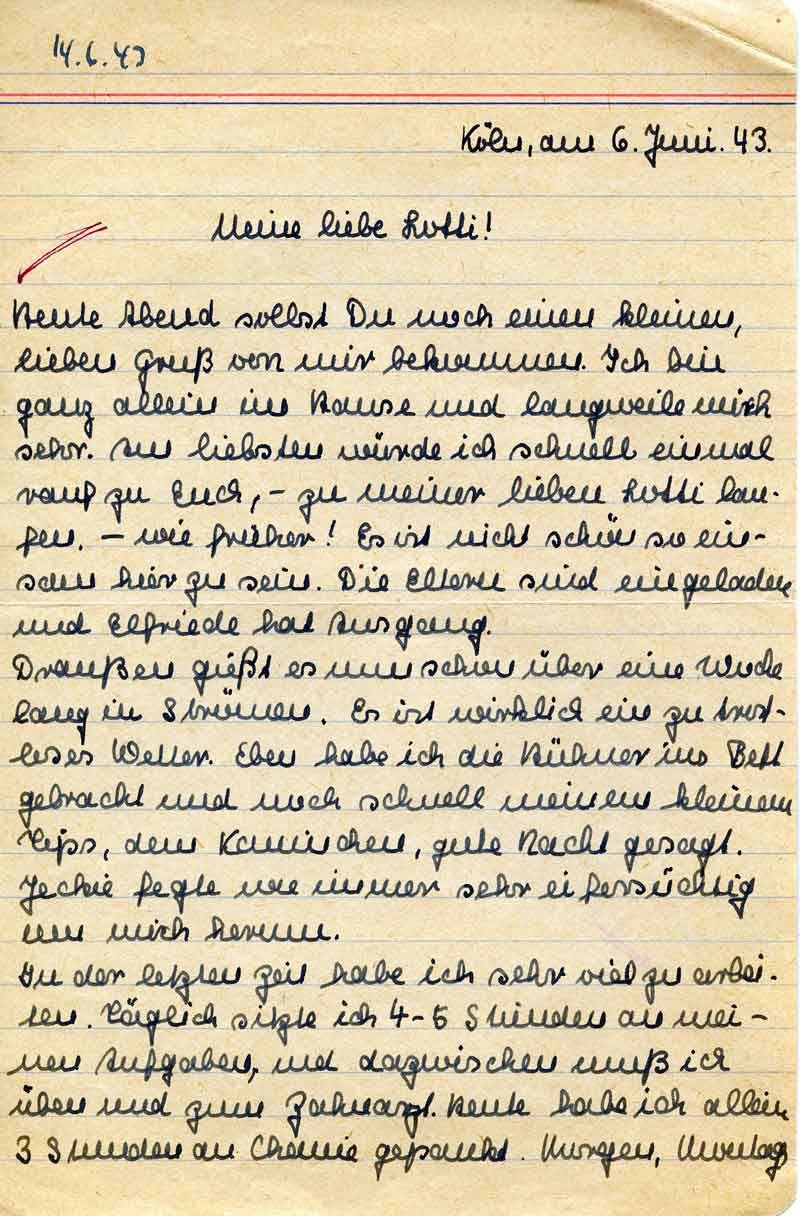 14.6.43
Köln, am 6. Juni. 43.
Meine liebe Lotti!
Heute Abend sollst Du noch einen kleinen,
lieben Gruß von mir bekommen. Ich bin
ganz allein im Hause und langweile mich
sehr. Am liebsten würde ich schnell einmal
rauf zu Euch, – zu meiner lieben Lotti lau-
fen. – wie früher! Es ist nicht schön so ein-
sam hier zu sein. Die Eltern sind eingeladen
und Elfriede hat Ausgang.
Draußen gießt es nun schon über eine Woche
lang in Strömen. Es ist wirklich ein zu trost-
loses Wetter. Eben habe ich die Hühner ins Bett
gebracht und noch schnell meinem kleinen
dem Kaninchen, gute Nacht gesagt.
Jeckie fegte wie immer sehr eifersüchtig
um mich herum.
In der letzten Zeit habe ich sehr viel zu arbei-
ten. Täglich sitzte ich 4-5 Stunden an mei-
nen Aufgaben, und dazwischen muß ich
üben und zum Zahnarzt. Heute habe ich allein
3 Stunden an Chemie gepaukt. Morgen, Montag